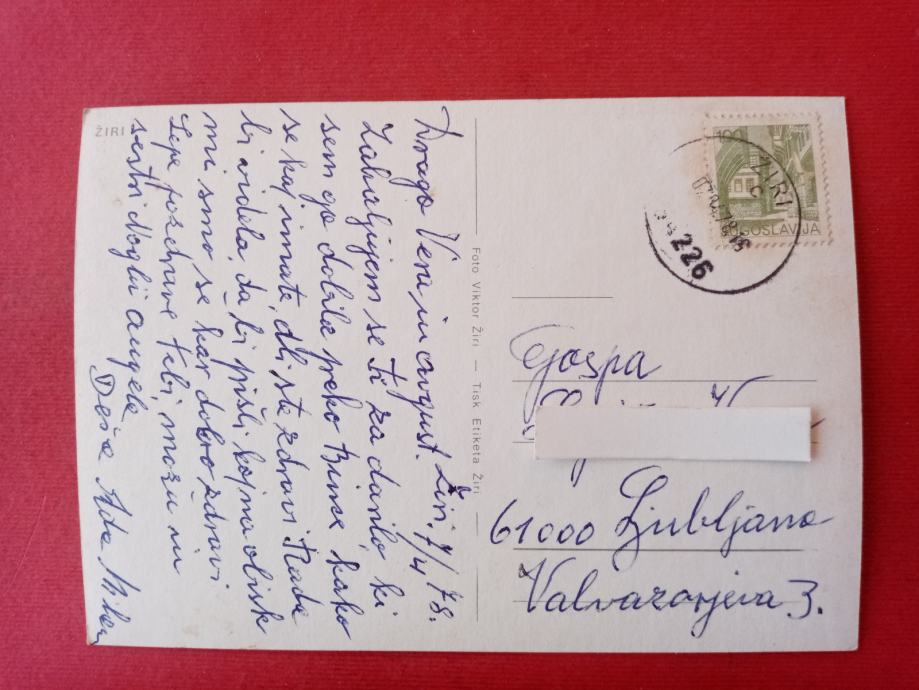 ŽIRI
Draga Vera in avgust. Žiri. 7/4 78.
Zahvaljujem se Ti za darilo, ki
sem ga dobila preko Brince, kako
se kaj imate, ali ste zdravi. Rada
bi videla, da bi prišli kaj na obisk
mi smo še kar dobro zdravi
Lepe pozdrave tebi možu in
sestri Angela
Ada Milan
Foto Viktor Žiri — Tisk Etiketa Žiri
100
JUGOSLAVIJA
ŽIRI
C
226
Gospa
61000 Ljubljana
Valvazorjeva 3.